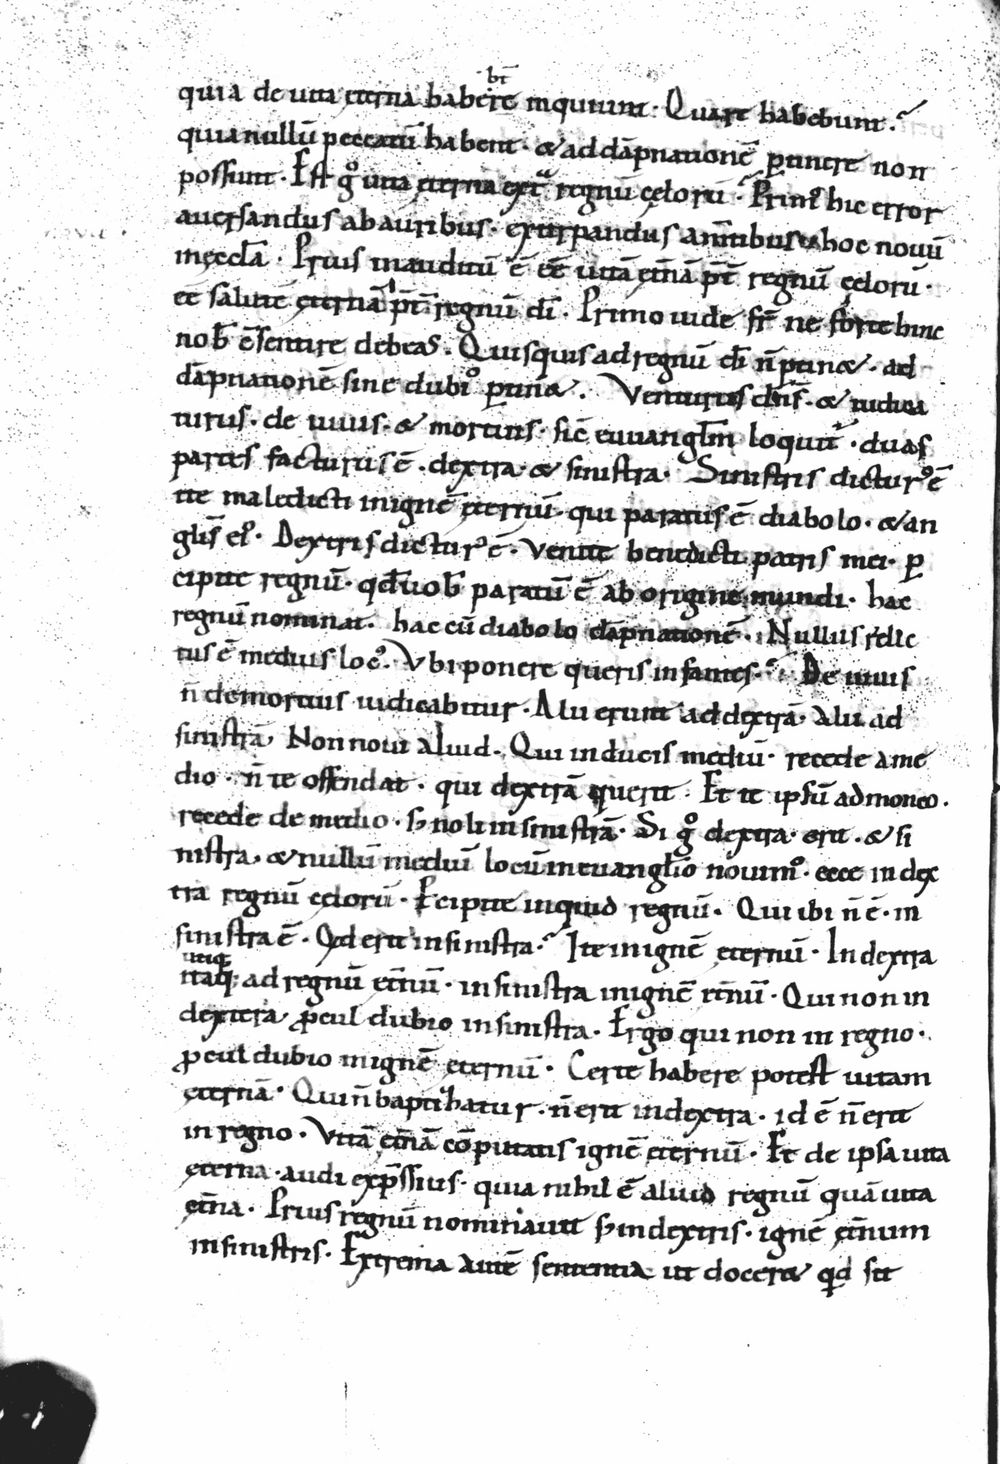 bt̄
quia de uita eterna habere inquiunt. Quare habebunt?
quia nullū peccatū habent. & ad dāpnationē ptinere non
possunt. Est gͦ uita eterna extͣ regnū celorū? Primꝰ hic error
auersandus ab auribus. exturpandus a mtibus. hoc nouū
in eccl̄a. Prius inauditū ē eē uitā et̄nā pt̄ regnū celorū.
eē salutē eternā pt̄ regnū dī. Primo uide fr̄ ne forte hinc
nob̄ c̄sentire debeas. Quisquis ad regnū dī n̄ ptin&. ad
dāpnationē sine dubiͦ ptin&. Venturus dn̄s. & iudica
turus. de uiuis. & mortuis. sic̄ euuangl̄m loquit̄. duas
partes facturus ē. dextra. & sinistra. Sinistris dicturꝰ ē
ite maledicti in ignē eternū. qui paratus ē diabolo. & an
glis̄ eiꝰ. Dextris dicturꝰ ē. Venite benedicti patris mei. p
cipite regnū. qd̄ uob̄ paratū ē ab origine mundi. hac
regnū nominat. hac cū diabolo dāpnationē. Nullus relic
tus ē medius locꝰ. Vbi ponere queris infantes? De uiuis
n̄ de mortuis iudicabitur. Alii erunt ad dextrā. alii ad
sinistrā. Non noui aliud. Qui inducis mediū. recede a me
dio. n̄ te offendat. qui dextrā querit. Et te ipsū admoneo.
recede de medio. s; noli in sinistrā. Si gͦ dextra. erit. & si
nistra. & nullū mediū locū in euanglio nouimꝰ. ecce in dex
tra regnū celorū. Pcipite inquid regnū. Qui ibi n̄ ē. in
sinistra ē. Qd erit in sinistra? Ite in ignē eternū. In dextra
utiq;
itaq; ad regnū et̄nū. in sinistra in ignē et̄nū. Qui non in
dextera ꝓcul dubio in sinistra. Ergo qui non in regno.
ꝓcul dubio in ignē eternū. Certe habere potest uitam
eternā. Qui n̄ baptizatur. n̄ erit in dextra. id ē n̄ erit
in regno. Vitā et̄nā cōputatis ignē eternū. Et de ipsa uita
eterna. audi exp̄ssius. quia nihil ē aliud regnū quā uita
et̄na. Prius regnū nominauit s; in dextris. ignē et̄num
in sinistris. Extrema autē sententia ut docer& qd sit